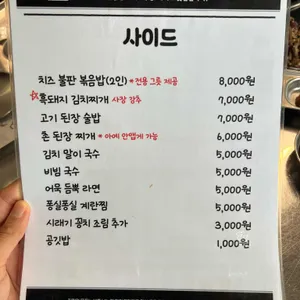 사이드
치즈 불판 볶음밥(2인) *전용 그릇 제공 8,000원
☆흑돼지 김치찌개 사장 강추 7,000원
고기 된장 술밥 7,000원
촌 된장 찌개 *아예 안맵게 가능 6,000원
김치 말이 국수 5,000원
비빔 국수 5,000원
어묵 듬뿍 라면 5,000원
퐁실퐁실 계란찜 5,000원
시래기 꽁치 조림 추가 3,000원
공깃밥 1,000원